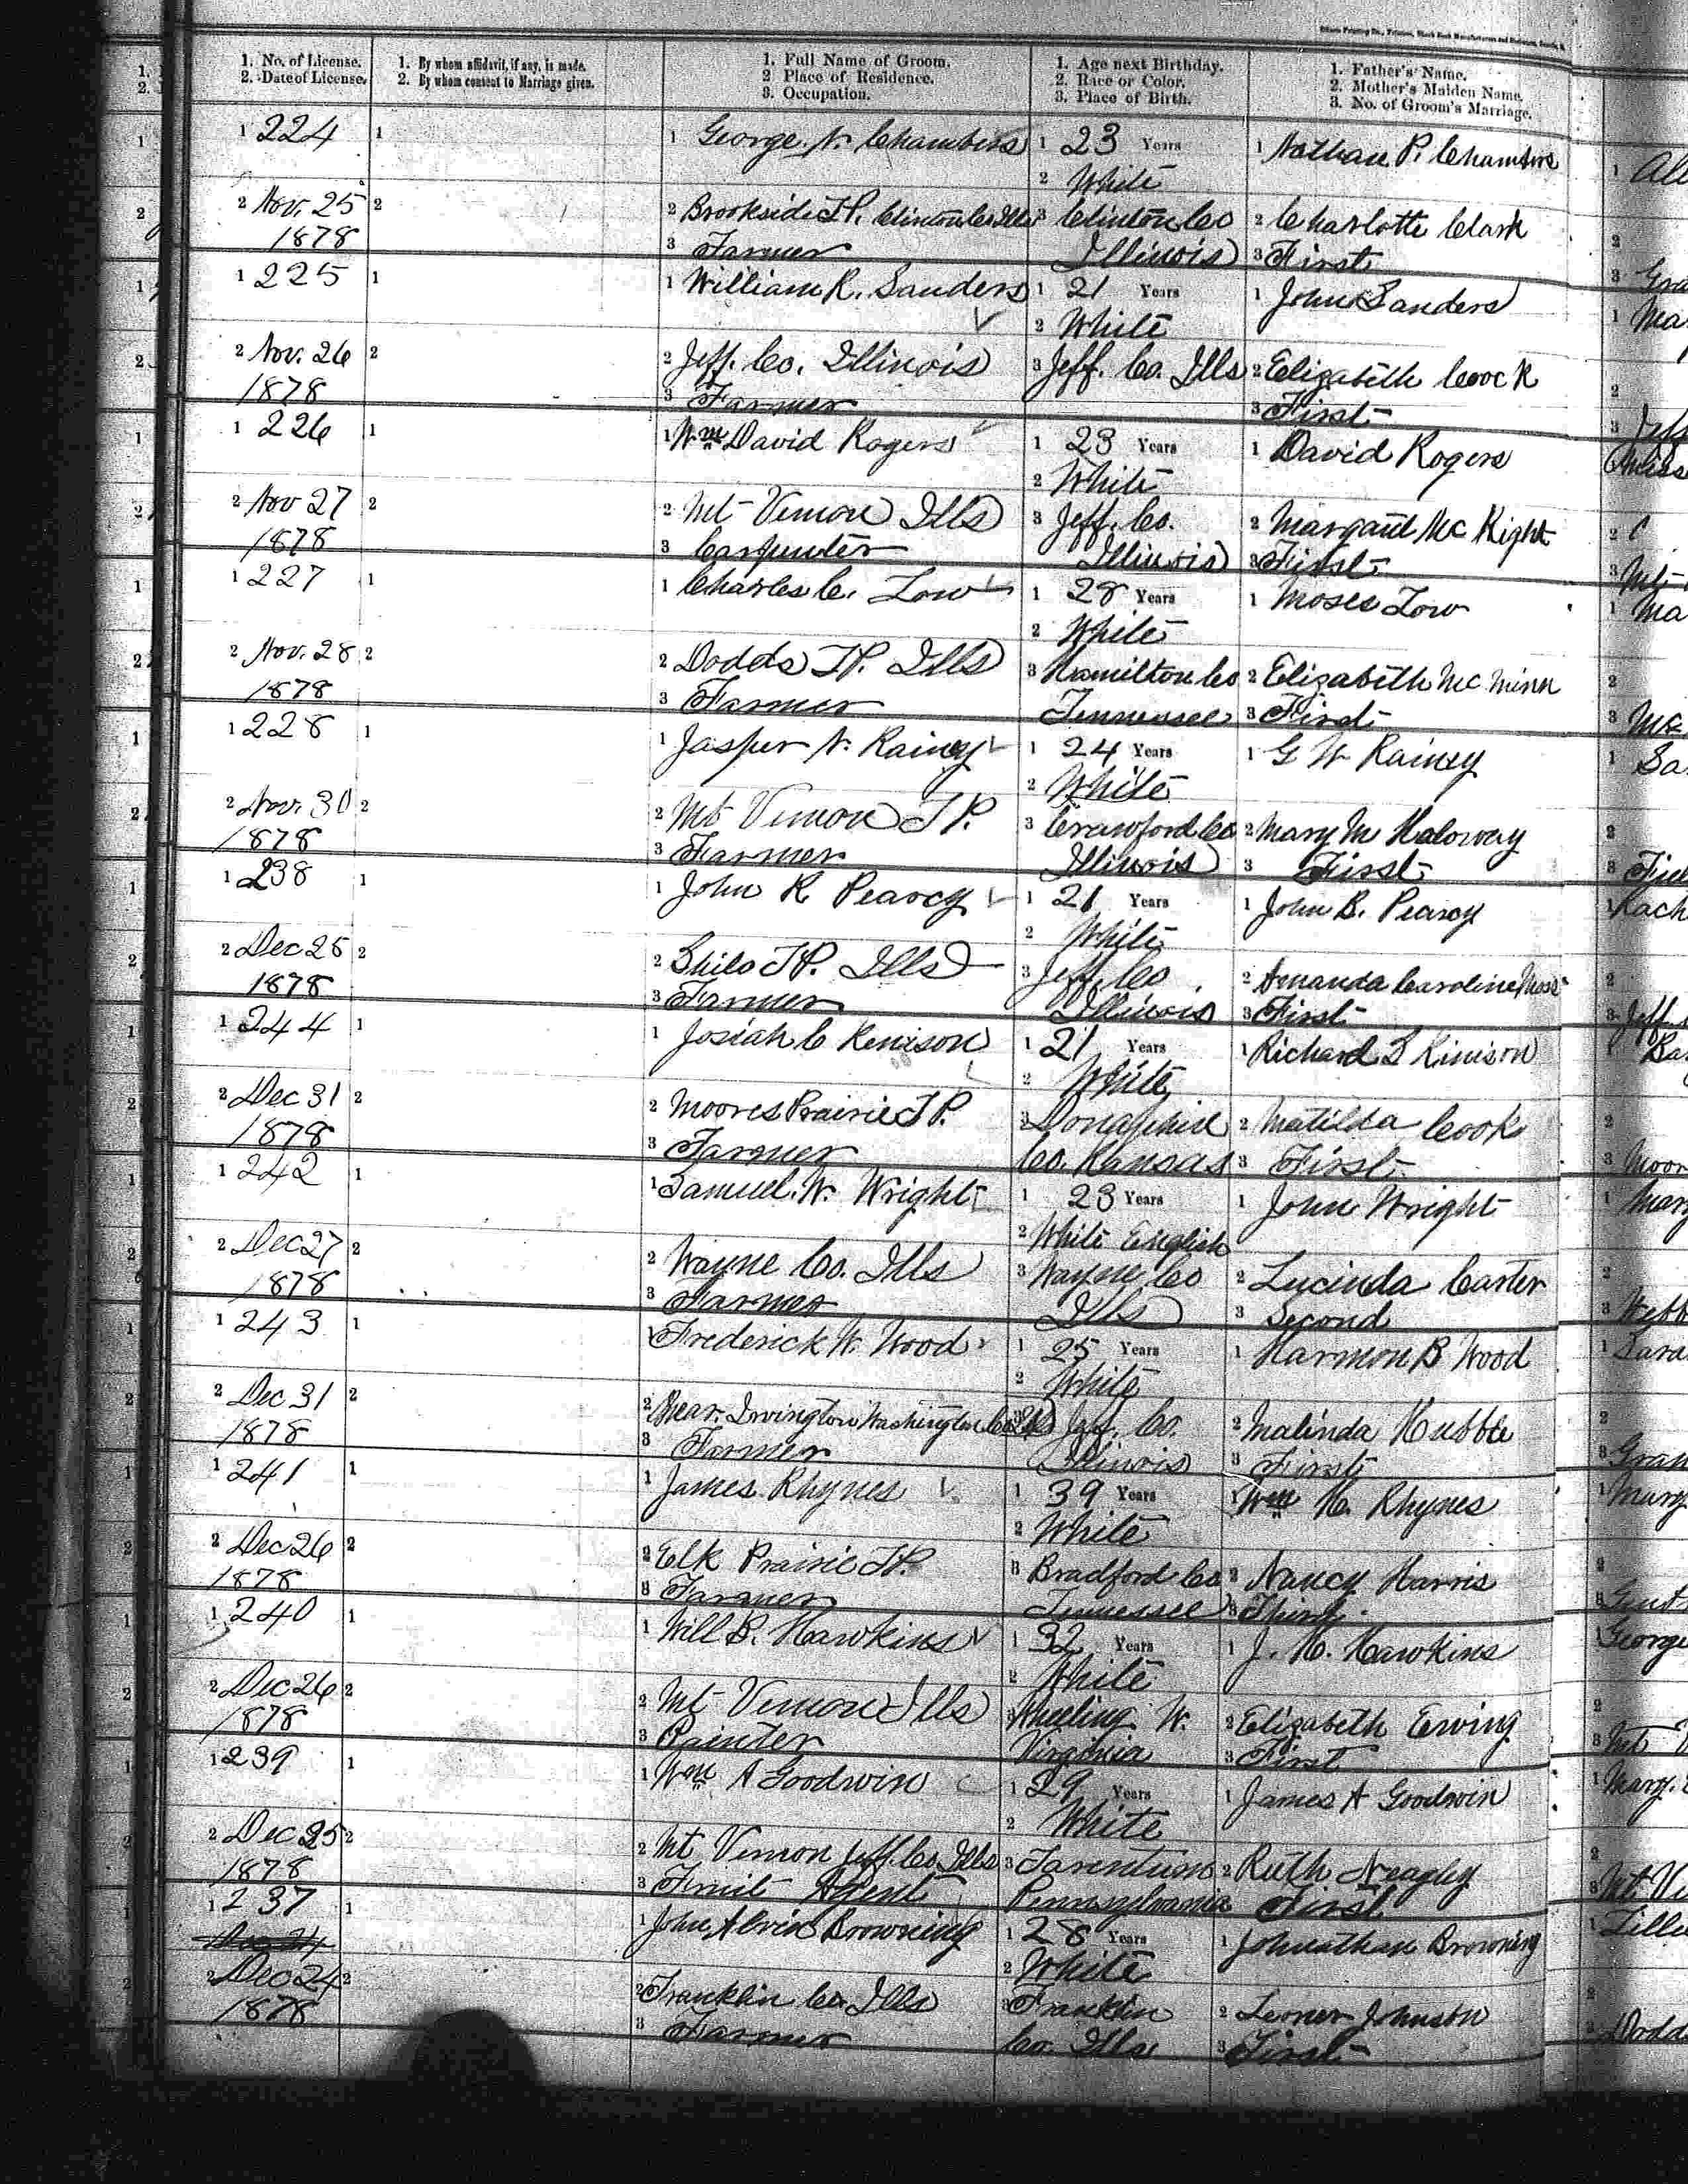 1. No. of License. 1. By whom affidavit, if any, is made. 1. Full Name of Groom. 1. Age next Birthday. 1. Father's Name.
2. Date of License. 2. By whom consent to Marriage given. 2 Place of Residence. 2. Race or Color. 2. Mother's Maiden Name.
3. Occupation. 3. Place of Birth. 3. No. of Groom's Marriage.
1 224 1 1 George N. Chambers 1 23 Years 1 Nathan P. Chambers
2 White
2 Nov. 25 2 2 Brookside TP. Clinton Co Ills 3 Clinton Co 2 Charlotte Clark
1878 3 Farmer Illinois 3 First
1 225 1 1 William R. Sanders 1 21 Years 1 John Sanders
2 White
2 Nov. 26 2 2 Jeff. Co. Illinois 3 Jeff. Co. Ills 2 Elizabeth Cook
1878 3 Farmer 3 First
1 226 1 1 Wm David Rogers 1 23 Years 1 David Rogers
2 White
2 Nov 27 2 2 Mt Vernon Ills 3 Jeff. Co. 2 Margaret Mc Kight
1878 3 Carpenter Illinois 3 First
1 227 1 1 Charles C. Low 1 28 Years 1 Moses Low
2 White
2 Nov. 28 2 2 Dodds TP. Ills 3 Hamilton Co 2 Elizabeth Mc Minn
1878 3 Farmer Tennessee 3 First
1 228 1 1 Jasper N. Rainey 1 24 Years 1 G W Rainey
2 White
2 Nov. 30 2 2 Mt Vernon TP. 3 Crawford Co 2 Mary M Haloway
1878 3 Farmer Illinois 3 First
1 238 1 1 John R Pearcy 1 21 Years 1 John B. Pearcy
2 White
2 Dec 25 2 2 Shilo TP. Ills 3 Jeff. Co. 2 Amanda Caroline Moss
1878 3 Farmer Illinois 3 First
1 244 1 1 Josiah C Kenison 1 21 Years 1 Richard S Kinison
2 White
2 Dec 31 2 2 Moores Prairie TP. 3 Donaphin 2 Matilda Cook
1878 3 Farmer Co. Kansas 3 First
1 242 1 1 Samuel W. Wright 1 23 Years 1 John Wright
2 White English
2 Dec 27 2 2 Wayne Co. Ills 3 Wayne Co 2 Lucinda Carter
1878 3 Farmer Ills 3 Second
1 243 1 1 Frederick W. Wood 1 25 Years 1 Harmon B Wood
2 White
2 Dec 31 2 2 Near Irvington Washington Co Ills 3 Jeff. Co. 2 Malinda Hubble
1878 3 Farmer Illinois 3 First
1 241 1 1 James Rhynes 1 39 Years 1 Wm H. Rhynes
2 White
2 Dec 26 2 2 Elk Prairie TP. 3 Bradford Co 2 Nancy Harris
1878 3 Farmer Tennessee 3 Third
1 240 1 1 Will B. Hawkins 1 32 Years 1 J. H. Hawkins
2 White
2 Dec 26 2 2 Mt Vernon Ills 3 Wheeling W. 2 Elizabeth Ewing
1878 3 Painter Virginia 3 First
1 239 1 1 Wm A Goodwin 1 29 Years 1 James A Goodwin
2 White
2 Dec 25 2 2 Mt Vernon Jeff. Co. Ills 3 Tarentum 2 Ruth Neagley
1878 3 Fruit Agent Pennsylvania First
1 237 1 1 John Alvin Browning 1 28 Years 1 Johnathan Browning
Dec 24 2 White
2 Dec 24 2 2 Franklin Co. Ills 3 Franklin 2 Leoner Johnson
1878 3 Farmer Co. Ills 3 First